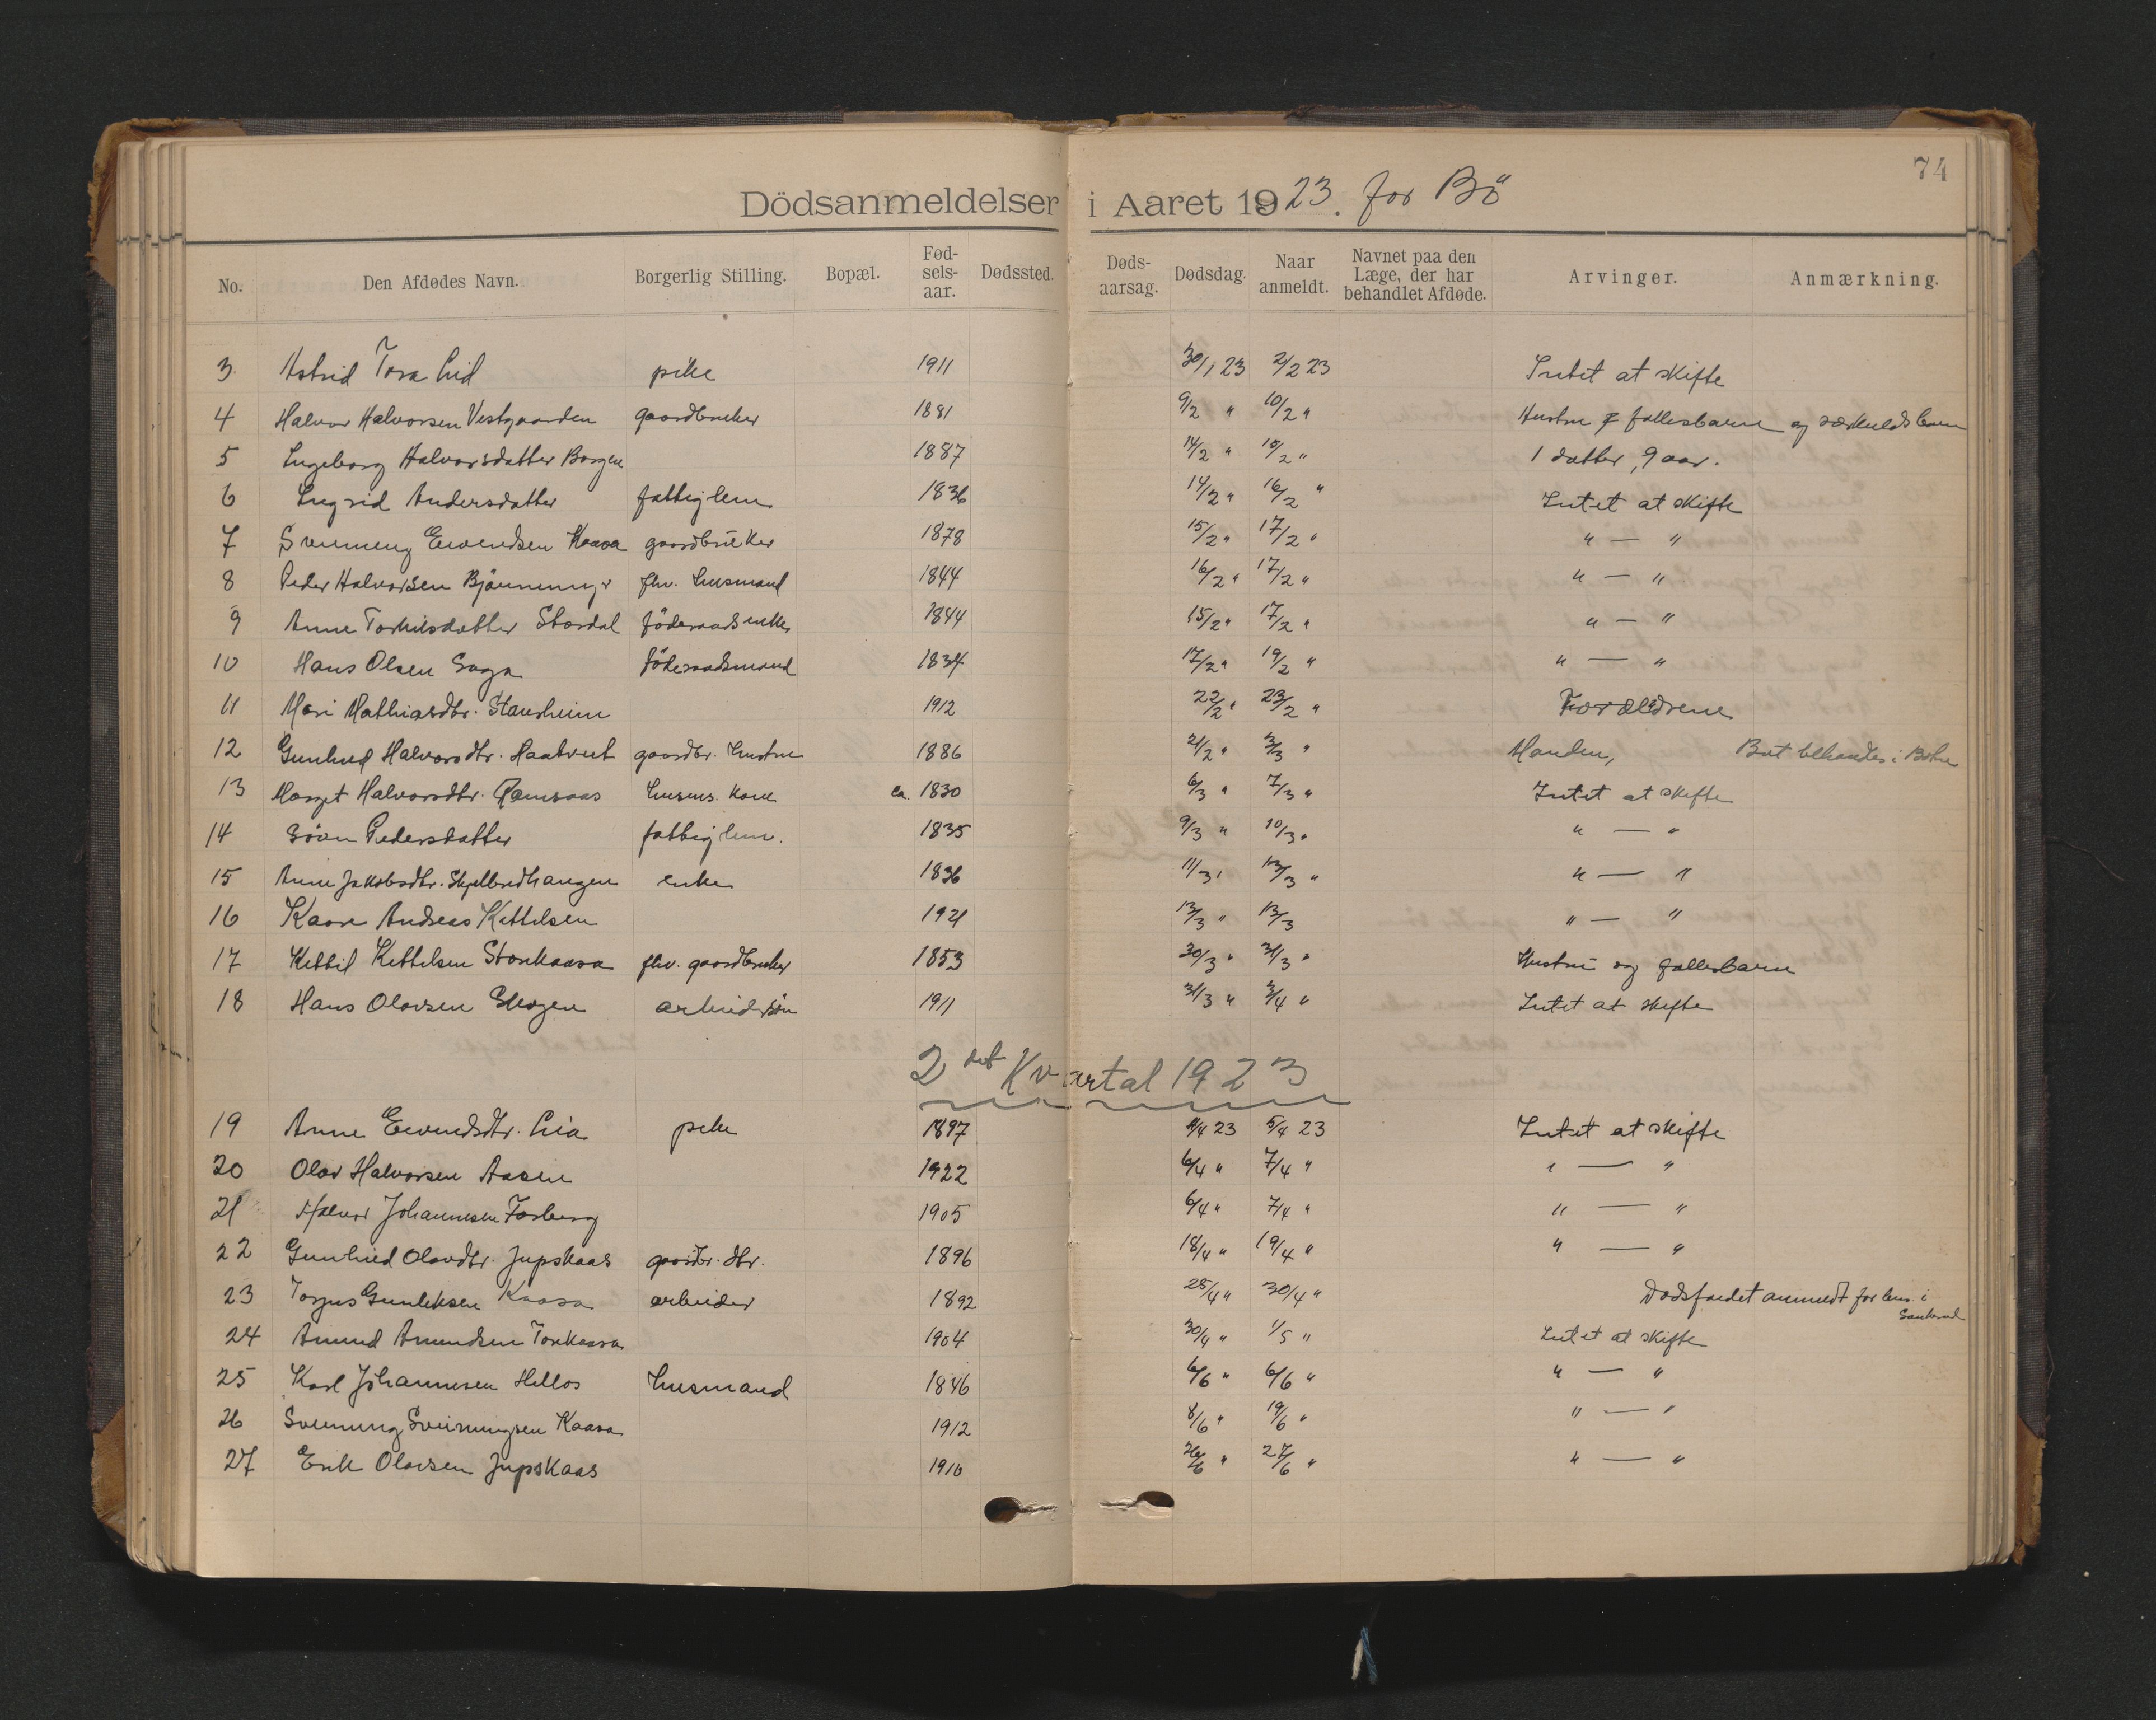 74
Dödsanmeldelser i Aaret 1923. for Bö
No. Den Afdødes Navn. Borgerlig Stilling. Bopæl. Fød-sels-aar. Dødssted. Døds-aarsag. Dødsdag. Naar anmeldt. Navnet paa den Læge, der har behandlet Afdøde. Arvinger. Anmærkning.
3 Astrid Tora Lid pike 1911 30/1 23 2/2 23 Intet at skifte
4 Halvor Halvorsen Vestgaarden gaardbruker 1881 9/2 " 10/2 " Hustru & fællesbarn og særkuldsbarn
5 Ingeborg Halvorsdatter Borgen 1887 14/2 " 15/2 " 1 datter, 9 aar.
6 Ingrid Andersdatter fattiglem 1836 14/2 " 16/2 " Intet at skifte
7 Sveinung Eivendsen Kaasa gaardbruker 1878 15/2 " 17/2 " " — "
8 Peder Halvorsen Bjönnemyr fhv. husmand 1844 16/2 " 17/2 " " — "
9 Anne Torkilsdatter Stordal föderaads enke 1844 15/2 " 17/2 " " — "
10 Hans Olsen Saga föderaadsmand 1834 17/2 " 19/2 " " — "
11 Mari Mathiasdtr. Stavsheim 1912 22/2 " 23/2 " Forældrene
12 Gunhild Halvorsdtr. Haatveit gaardbr. hustru 1886 21/2 " 3/3 " Manden, Bøt behandles i Bøhr
13 Marget Halvorsdtr. Ramsaas husms. kone ca. 1830 6/3 " 7/3 " Intet at skifte
14 Söven Pedersdatter fattiglem. 1835 9/3 " 10/3 " " — "
15 Anne Jakobsdtr. Skjelbredhaugen enke 1836 11/3 " 13/3 " " — "
16 Kaare Andreas Kittilsen 1921 13/3 " 13/3 " — "
17 Kittil Kittilsen Storkaasa fhv. gaardbruker 1853 30/3 " 31/3 " Hustru og fællesbarn
18 Hans Olavsen Skogen arbeidersön 1911 31/3 " 3/4 " Intet at skifte
2det Kvartal 1923
19 Anne Eivendsdtr. Lia pike 1897 4/4 23 5/4 23 Intet at skifte
20 Olav Halvorsen Aasen 1922 6/4 " 7/4 " " — "
21 Halvor Johannesen Forberg 1905 6/4 " 7/4 " " — "
22 Gunhild Olavdtr. Jupskaas gaardbr. dtr. 1896 18/4 " 19/4 " " — "
23 Torjus Gunleksen Kaasa arbeider 1892 25/4 " 30/4 " Dødsfaldet anmeldt for lens. i Sauherad
24 Amund Amundsen Torkaasa 1904 30/4 " 1/5 " Intet at skifte
25 Karl Johannesen Hellos husmand 1846 6/6 " 6/6 " " — "
26 Sveinung Sveinungsen Kaasa 1912 8/6 " 19/6 " " — "
27 Erik Olavsen Jupskaas 1910 26/6 " 27/6 " " — "